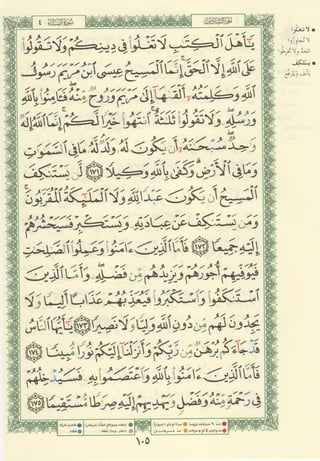 يَـٰٓأَهْلَ ٱلْكِتَـٰبِ لَا تَغْلُوا۟ فِى دِينِكُمْ وَلَا تَقُولُوا۟
عَلَى ٱللَّهِ إِلَّا ٱلْحَقَّ ۚ إِنَّمَا ٱلْمَسِيحُ عِيسَى ٱبْنُ مَرْيَمَ رَسُولُ
ٱللَّهِ وَكَلِمَتُهُۥٓ أَلْقَىٰهَآ إِلَىٰ مَرْيَمَ وَرُوحٌ مِّنْهُ ۖ فَـَٔامِنُوا۟ بِٱللَّهِ
وَرُسُلِهِۦ ۖ وَلَا تَقُولُوا۟ ثَلَـٰثَةٌ ۚ ٱنتَهُوا۟ خَيْرًا لَّكُمْ ۚ إِنَّمَا ٱللَّهُ إِلَـٰهٌ
وَٰحِدٌ ۖ سُبْحَـٰنَهُۥٓ أَن يَكُونَ لَهُۥ وَلَدٌ ۘ لَّهُۥ مَا فِى ٱلسَّمَـٰوَٰتِ
وَمَا فِى ٱلْأَرْضِ ۗ وَكَفَىٰ بِٱللَّهِ وَكِيلًا ١٧١ لَّن يَسْتَنكِفَ
ٱلْمَسِيحُ أَن يَكُونَ عَبْدًا لِّلَّهِ وَلَا ٱلْمَلَـٰٓئِكَةُ ٱلْمُقَرَّبُونَ ۚ
وَمَن يَسْتَنكِفْ عَنْ عِبَادَتِهِۦ وَيَسْتَكْبِرْ فَسَيَحْشُرُهُمْ
إِلَيْهِ جَمِيعًا ١٧٢ فَأَمَّا ٱلَّذِينَ ءَامَنُوا۟ وَعَمِلُوا۟ ٱلصَّـٰلِحَـٰتِ
فَيُوَفِّيهِمْ أُجُورَهُمْ وَيَزِيدُهُم مِّن فَضْلِهِۦ ۖ وَأَمَّا ٱلَّذِينَ
ٱسْتَنكَفُوا۟ وَٱسْتَكْبَرُوا۟ فَيُعَذِّبُهُمْ عَذَابًا أَلِيمًا وَلَا
يَجِدُونَ لَهُم مِّن دُونِ ٱللَّهِ وَلِيًّا وَلَا نَصِيرًا ١٧٣ يَـٰٓأَيُّهَا ٱلنَّاسُ
قَدْ جَآءَكُم بُرْهَـٰنٌ مِّن رَّبِّكُمْ وَأَنزَلْنَآ إِلَيْكُمْ نُورًا مُّبِينًا ١٧٤
فَأَمَّا ٱلَّذِينَ ءَامَنُوا۟ بِٱللَّهِ وَٱعْتَصَمُوا۟ بِهِۦ فَسَيُدْخِلُهُمْ
فِى رَحْمَةٍ مِّنْهُ وَفَضْلٍ وَيَهْدِيهِمْ إِلَيْهِ صِرَٰطًا مُّسْتَقِيمًا ١٧٥
١٠٥